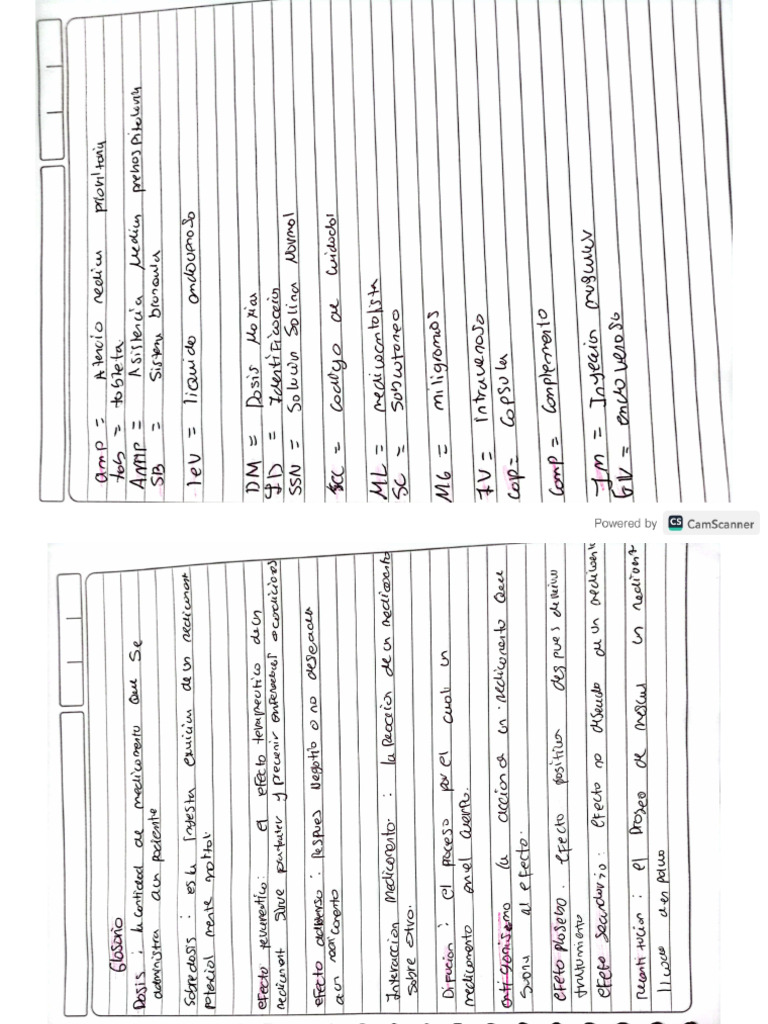 amp = Atencio medica
tab = tableta
AMP = Asistencia Medica prehospitalaria
SB = Sistema
lev = liquido endovenoso
DM = Dosis Maxima
ID = Identificacion
SSN = Solucion Salina Normal
= codigo de cuidado
ML = medicamentolista
SC = Subcutaneo
MG = miligramos
IV = intravenoso
Cap = Capsula
Comp = Complemento
IM = Inyeccion muscular
EV = endovenoso
Powered by CS CamScanner
Glosario
Dosis : la cantidad de medicamento que se
administra a un paciente
sobredosis : es la ingesta de un medicament
potencial mente mortal.
efecto : el efecto terapeutico de un
medicament sirve para y prevenir enfermedades o condiciones
efecto adverso : respues negatib o no deseada
a un medicamento
Interaccion medicamento : la reaccion de un medicamento
sobre otro.
: el proceso por el cual un
medicamento en el cuerpo.
antigonismo la accion de un medicamento que
al efecto.
efeto plasebo : efecto positivo despues de
tratamiento
efeto secundario : efecto no deseado de un medicament
: el proseo de mesclar un
liquido a en polvo